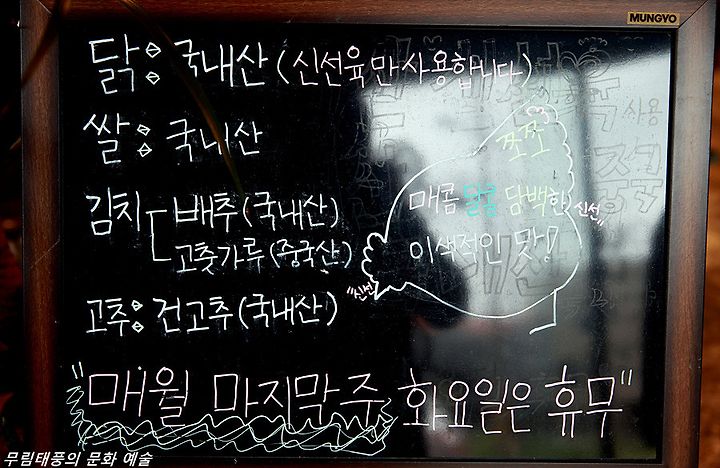 MUNGYO
닭: 국내산 (신선육만사용합니다)
쌀: 국내산
김치 배추 (국내산)
고춧가루 (중국산)
고추: 건고추 (국내산)
쪼쪼
매콤 달콤 담백한
이색적인 맛!
"신선
신선"
"매월 마지막주 화요일은 휴무"
무림태풍의 문화 예술